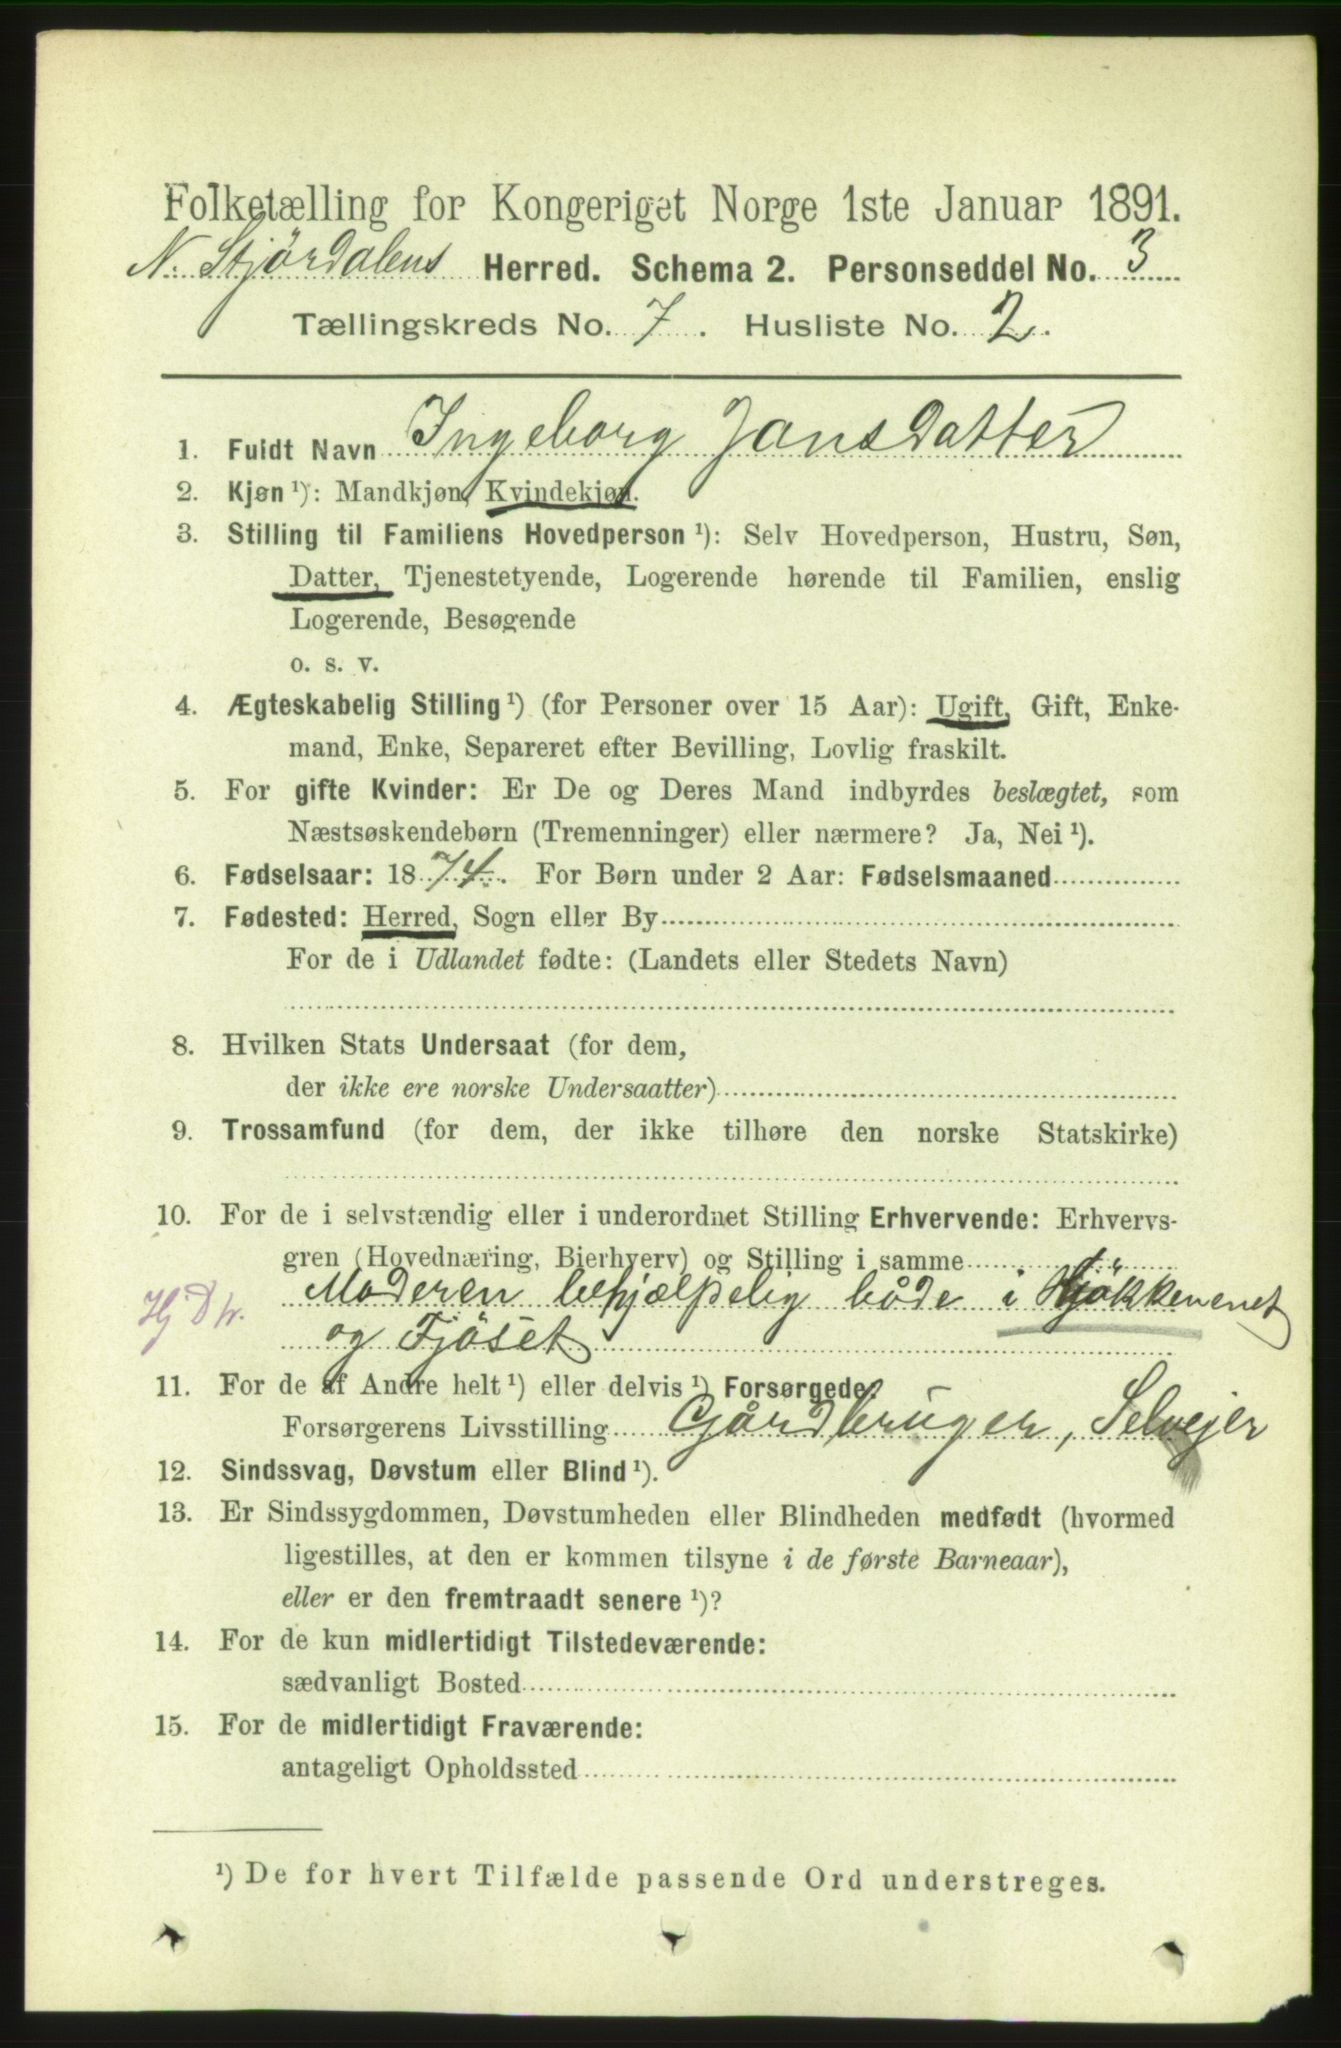 Folketælling for Kongeriget Norge 1ste Januar 1891.
N. Stjördalens Herred. Schema 2. Personseddel No. 3
Tællingskreds No. 7. Husliste No. 2.
1. Fuldt Navn Ingeborg Jansdatter
2. Kjøn ¹): Mandkjøn, Kvindekjøn.
3. Stilling til Familiens Hovedperson ¹): Selv Hovedperson, Hustru, Søn,
Datter, Tjenestetyende, Logerende hørende til Familien, enslig
Logerende, Besøgende
o. s. v.
4. Ægteskabelig Stilling ¹) (for Personer over 15 Aar): Ugift, Gift, Enke-
mand, Enke, Separeret efter Bevilling, Lovlig fraskilt.
5. For gifte Kvinder: Er De og Deres Mand indbyrdes beslægtet, som
Næstsøskendebørn (Tremenninger) eller nærmere? Ja, Nei ¹).
6. Fødselsaar: 1874. For Børn under 2 Aar: Fødselsmaaned
7. Fødested: Herred, Sogn eller By
For de i Udlandet fødte: (Landets eller Stedets Navn)
8. Hvilken Stats Undersaat (for dem,
der ikke ere norske Undersaatter)
9. Trossamfund (for dem, der ikke tilhøre den norske Statskirke)
10. For de i selvstændig eller i underordnet Stilling Erhvervende: Erhvervs-
gren (Hovednæring, Bierhverv) og Stilling i samme
Moderen behjælpelig både i Kjökkenenet
og Fjöset
11. For de af Andre helt ¹) eller delvis ¹) Forsørgede:
Forsørgerens Livsstilling Gårdbruger, Selvejer
12. Sindssvag, Døvstum eller Blind ¹).
13. Er Sindssygdommen, Døvstumheden eller Blindheden medfødt (hvormed
ligestilles, at den er kommen tilsyne i de første Barneaar),
eller er den fremtraadt senere ¹)?
14. For de kun midlertidigt Tilstedeværende:
sædvanligt Bosted
15. For de midlertidigt Fraværende:
antageligt Opholdssted
¹) De for hvert Tilfælde passende Ord understreges.